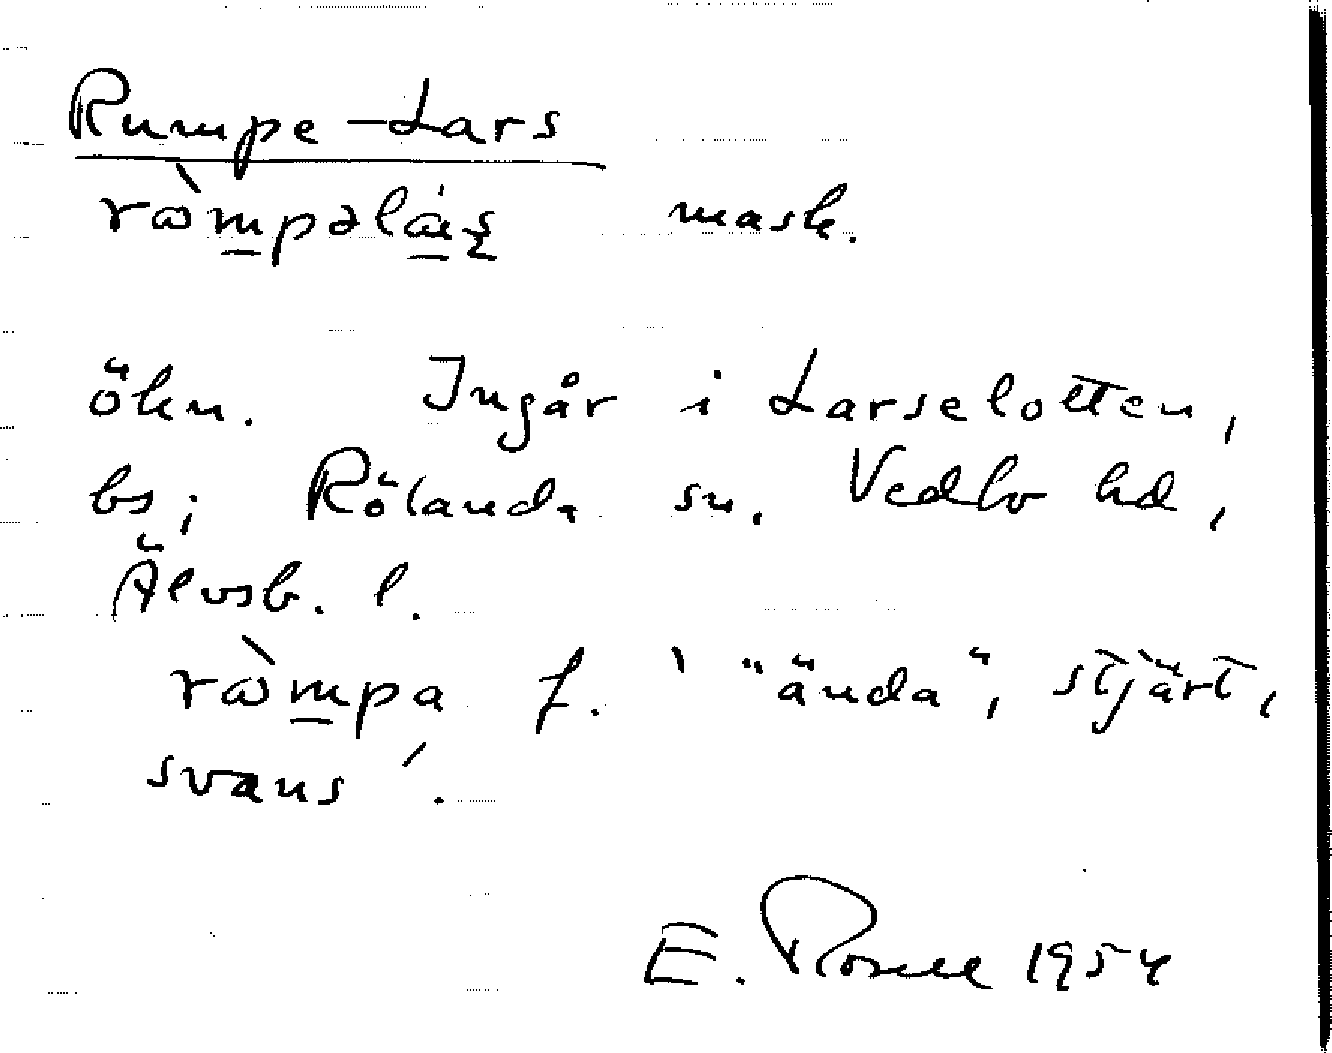 Rumpe-Lars
ròmpəlás mask.
ökn. Ingår i Larselotten,
bs; Rölanda sn, Vedbo hd,
Älvsb. l.
ròmpa f. ' "ända", stjärt,
svans'.
E. Rosell 1954